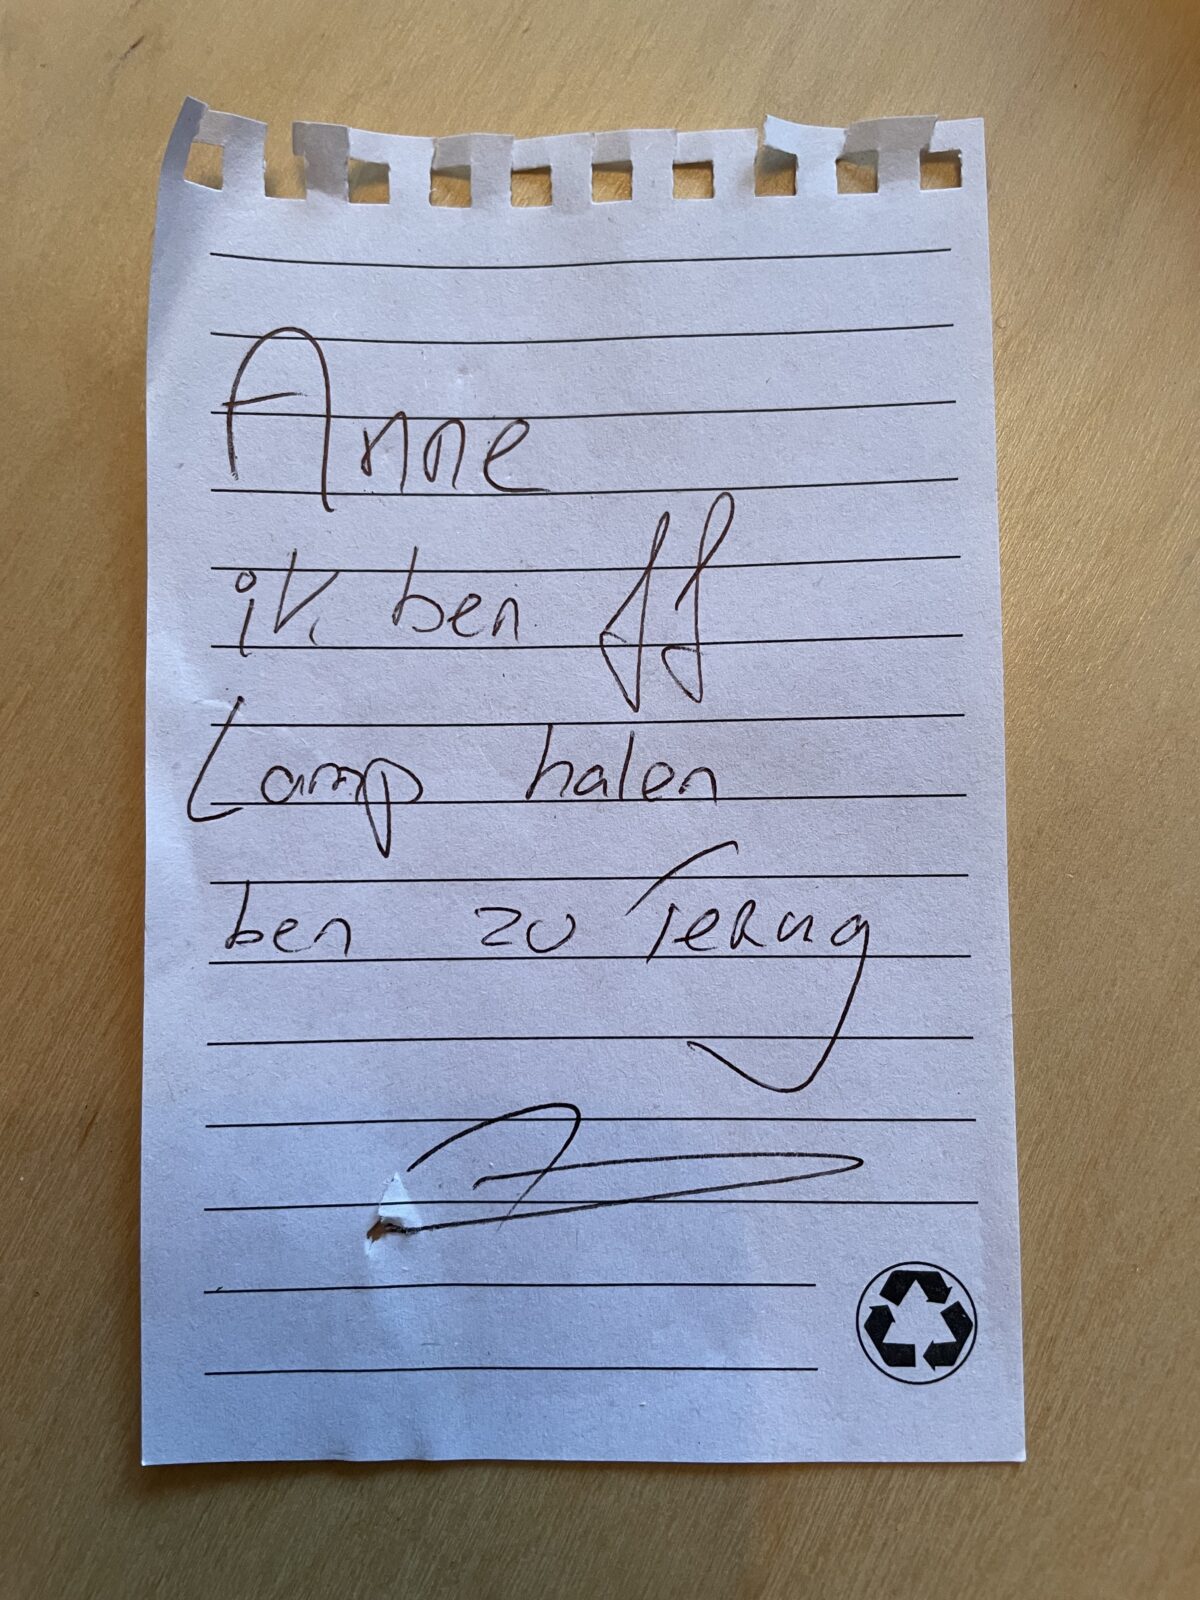 Anne
ik ben ff
Lamp halen
ben zo Terug